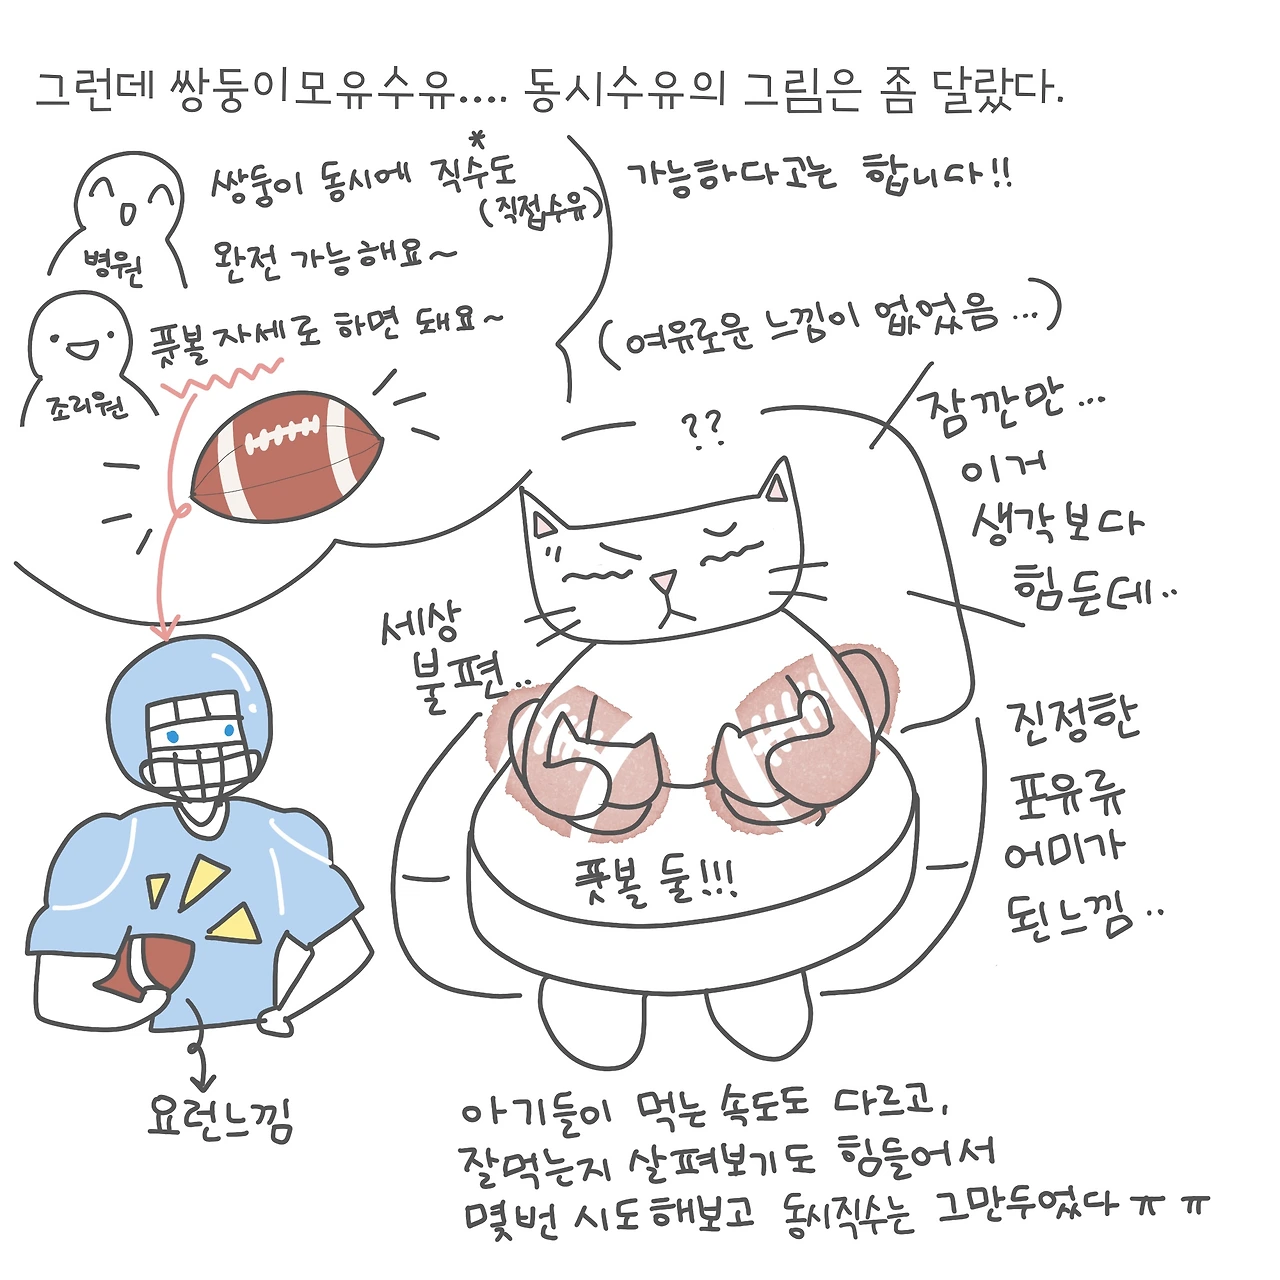 그런데 쌍둥이모유수유.... 동시수유의 그림은 좀 달랐다.
쌍둥이 동시에 직수도*
(직접수유)
완전 가능해요~
병원
풋볼 자세로 하면 돼요~
조리원
가능하다고는 합니다!!
(여유로운 느낌이 없었음...)
??
잠깐만...
이거
생각보다
힘든데..
세상
불편..
풋볼 둘!!!
진정한
포유류
어미가
된느낌..
요런느낌
아기들이 먹는 속도도 다르고,
잘먹는지 살펴보기도 힘들어서
몇번 시도해보고 동시직수는 그만두었다 ㅠㅠ